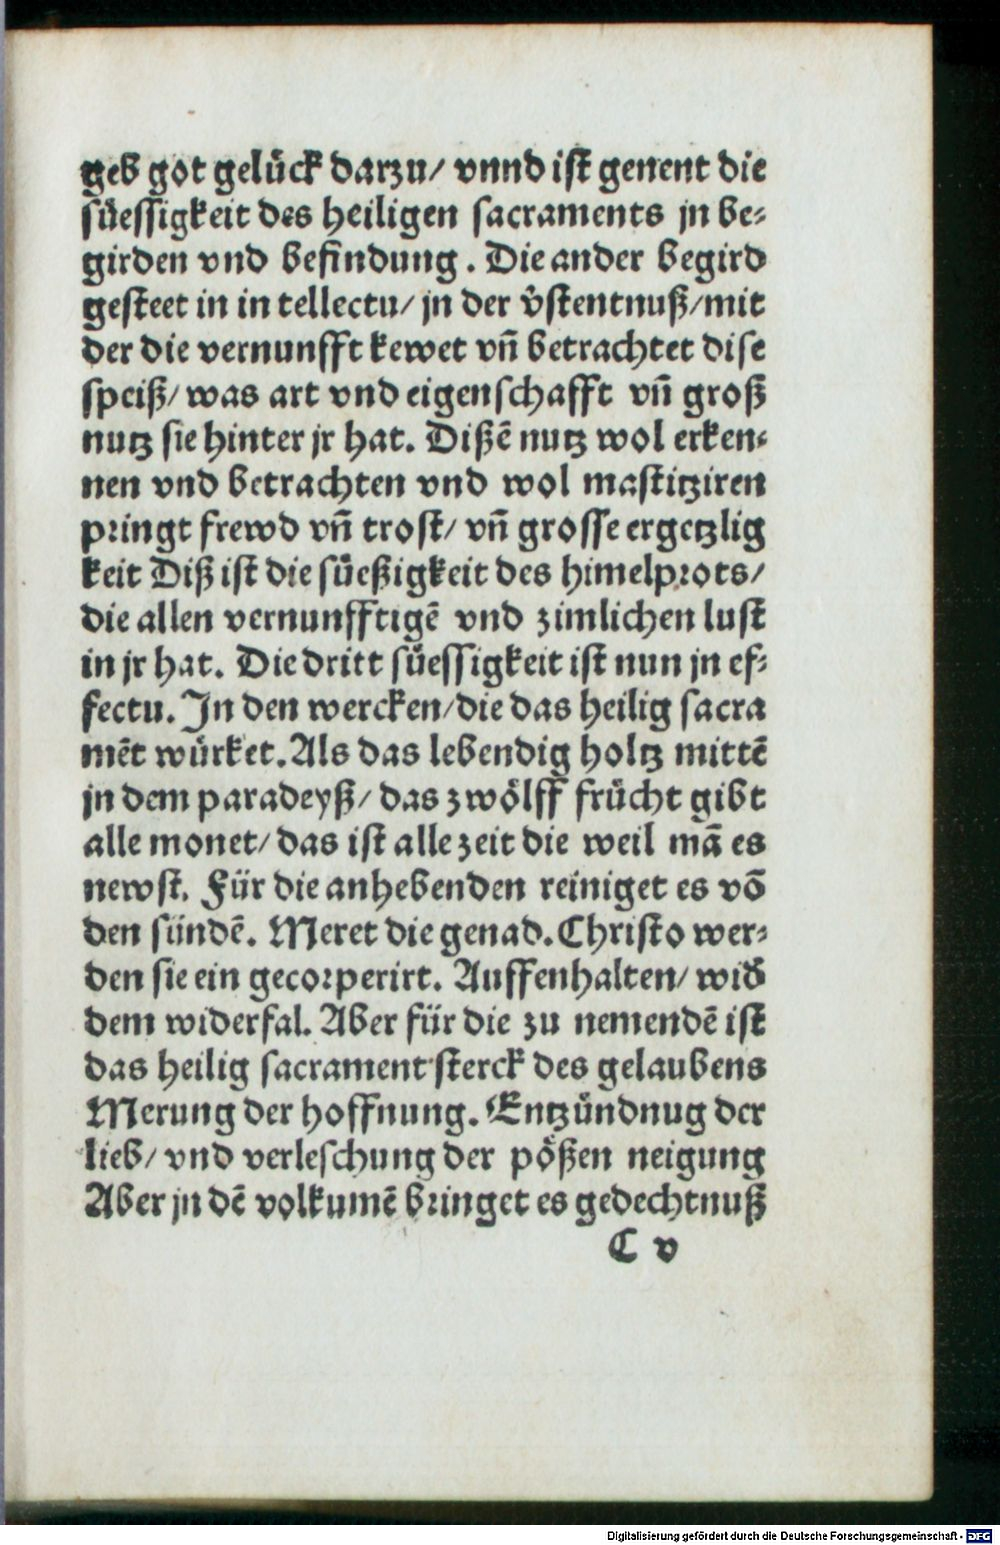 geb got gelück darzu/ vnnd ist genent die
süessigkeit des heiligen sacraments jn be⸗
girden vnd befindung. Die ander begird
gesteet in in tellectu/ jn der v̾stentnuß/mit
der die vernunfft kewet vñ betrachtet dise
speiß/ was art vnd eigenschafft vñ groß
nutz sie hinter jr hat. Dißē nutz wol erken⸗
nen vnd betrachten vnd wol mastitziren
pringt frewd vñ trost/ vñ grosse ergetzlig
keit Diß ist die süeßigkeit des himelprots/
die allen vernunfftigē vnd zimlichen lust
in jr hat. Die dritt süessigkeit ist nun jn ef⸗
fectu. Jn den wercken/die das heilig sacra
mēt würket. Als das lebendig holtz mittē
jn dem paradeyß/ das zwölff frücht gibt
alle monet/ das ist alle zeit die weil mā es
newst. Für die anhebenden reiniget es vō
den sündē. Meret die genad. Christo wer⸗
den sie ein gecorperirt. Auffenhalten/ wid̾
dem widerfal. Aber für die zu nemendē ist
das heilig sacrament sterck des gelaubens
Merung der hoffnung. Entzündnug der
lieb/ vnd verleschung der pößen neigung
Aber jn dē volkumē bringet es gedechtnuß
C v
Digitalisierung gefördert durch die Deutsche Forschungsgemeinschaft - DFG